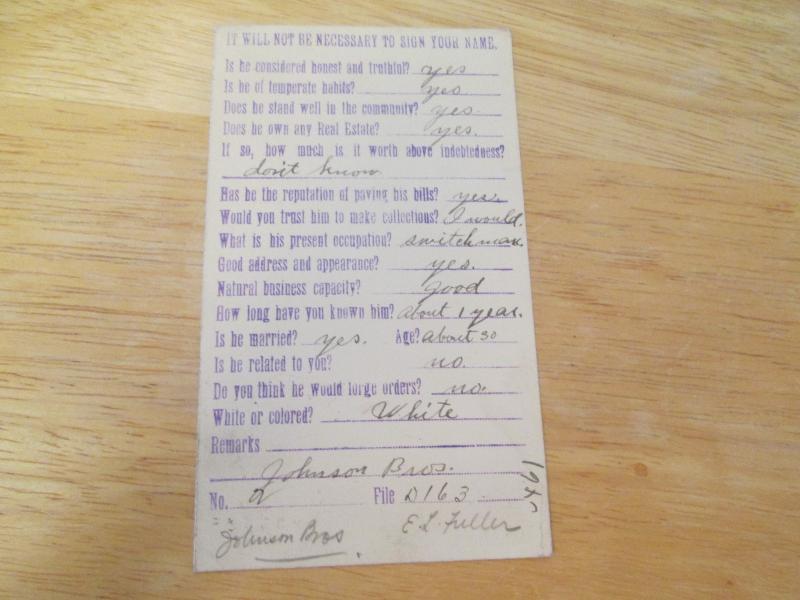 IT WILL NOT BE NECESSARY TO SIGN YOUR NAME.
Is he considered honest and truthful? yes
Is he of temperate habits? yes
Does he stand well in the community? yes.
Does he own any Real Estate? yes.
If so, how much is it worth above indebtedness?
don't know
Has he the reputation of paying his bills? yes.
Would you trust him to make collections? I would.
What is his present occupation? switchman.
Good address and appearance? yes.
Natural business capacity? good
How long have you known him? about 1 year.
Is he married? yes. Age? about 30
Is he related to you? no.
Do you think he would forge orders? no.
White or colored? White
Remarks
Johnson Bros.
No. 2 File D163
Johnson Bros
E L Fuller